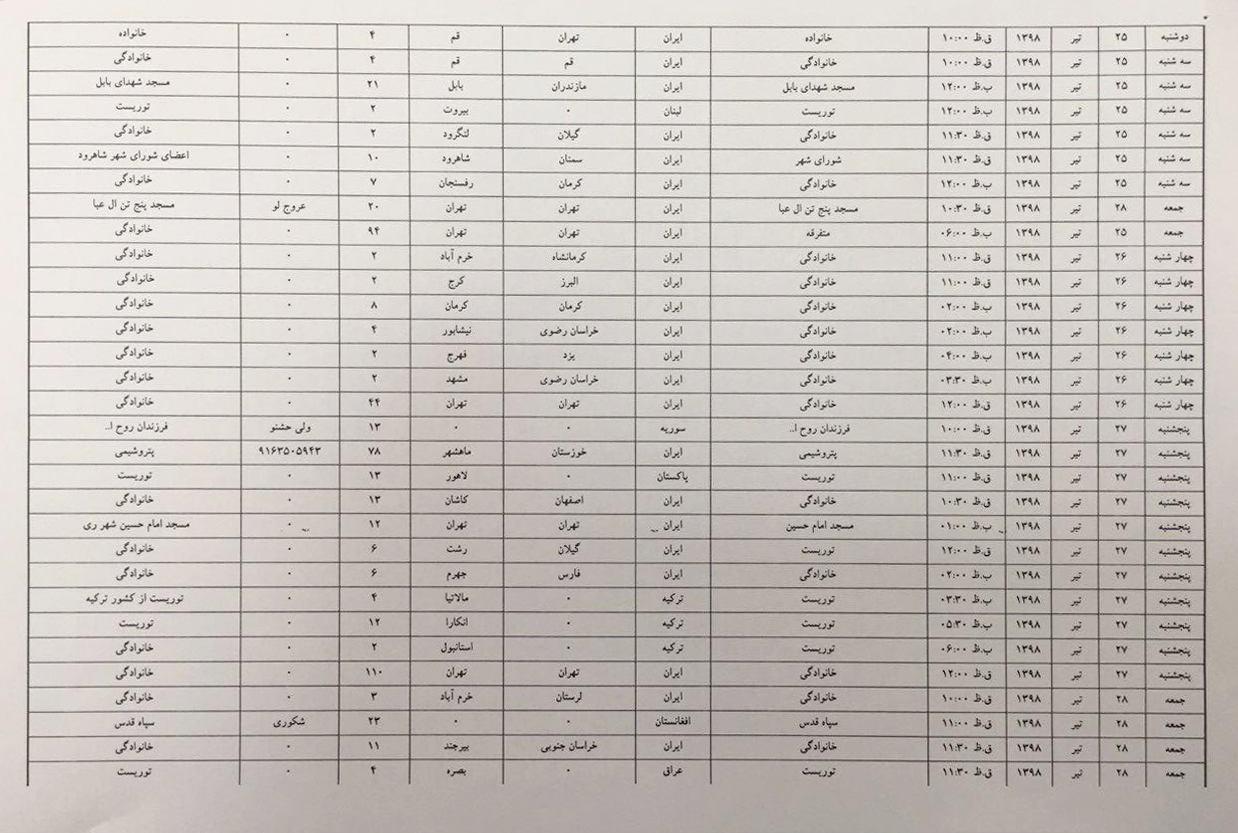 دوشنبه ۲۵ تیر ۱۳۹۸ ق.ظ ۱۰:۰۰ خانواده ایران تهران قم ۴ ۰ خانواده
سه شنبه ۲۵ تیر ۱۳۹۸ ق.ظ ۱۰:۰۰ خانوادگی ایران قم قم ۴ ۰ خانوادگی
سه شنبه ۲۵ تیر ۱۳۹۸ ب.ظ ۱۲:۰۰ مسجد شهدای بابل ایران مازندران بابل ۲۱ ۰ مسجد شهدای بابل
سه شنبه ۲۵ تیر ۱۳۹۸ ب.ظ ۱۲:۰۰ توریست لبنان ۰ بیروت ۲ ۰ توریست
سه شنبه ۲۵ تیر ۱۳۹۸ ق.ظ ۱۱:۳۰ خانوادگی ایران گیلان لنگرود ۲ ۰ خانوادگی
سه شنبه ۲۵ تیر ۱۳۹۸ ق.ظ ۱۱:۳۰ شورای شهر ایران سمنان شاهرود ۱۰ ۰ اعضای شورای شهر شاهرود
سه شنبه ۲۵ تیر ۱۳۹۸ ب.ظ ۱۲:۰۰ خانوادگی ایران کرمان رفسنجان ۷ ۰ خانوادگی
جمعه ۲۸ تیر ۱۳۹۸ ق.ظ ۱۰:۳۰ مسجد پنج تن ال عبا ایران تهران تهران ۲۰ عروج لو مسجد پنج تن ال عبا
جمعه ۲۵ تیر ۱۳۹۸ ب.ظ ۰۶:۰۰ متفرقه ایران تهران تهران ۹۴ ۰ خانوادگی
چهار شنبه ۲۶ تیر ۱۳۹۸ ق.ظ ۱۱:۰۰ خانوادگی ایران کرمانشاه خرم آباد ۲ ۰ خانوادگی
چهار شنبه ۲۶ تیر ۱۳۹۸ ق.ظ ۱۱:۰۰ خانوادگی ایران البرز کرج ۲ ۰ خانوادگی
چهار شنبه ۲۶ تیر ۱۳۹۸ ب.ظ ۰۲:۰۰ خانوادگی ایران کرمان کرمان ۸ ۰ خانوادگی
چهار شنبه ۲۶ تیر ۱۳۹۸ ب.ظ ۰۲:۰۰ خانوادگی ایران خراسان رضوی نیشابور ۴ ۰ خانوادگی
چهار شنبه ۲۶ تیر ۱۳۹۸ ب.ظ ۰۴:۰۰ خانوادگی ایران یزد فهرج ۲ ۰ خانوادگی
چهار شنبه ۲۶ تیر ۱۳۹۸ ب.ظ ۰۳:۳۰ خانوادگی ایران خراسان رضوی مشهد ۲ ۰ خانوادگی
چهار شنبه ۲۶ تیر ۱۳۹۸ ق.ظ ۱۲:۰۰ خانوادگی ایران تهران تهران ۴۴ ۰ خانوادگی
پنجشنبه ۲۷ تیر ۱۳۹۸ ق.ظ ۱۰:۰۰ فرزندان روح ا.. سوریه ۰ ۰ ۱۳ ولی حشنو فرزندان روح ا..
پنجشنبه ۲۷ تیر ۱۳۹۸ ق.ظ ۱۱:۳۰ پتروشیمی ایران خوزستان ماهشهر ۷۸ ۹۱۶۳۵۰۵۹۴۳ پتروشیمی
پنجشنبه ۲۷ تیر ۱۳۹۸ ق.ظ ۱۱:۰۰ توریست پاکستان ۰ لاهور ۱۳ ۰ توریست
پنجشنبه ۲۷ تیر ۱۳۹۸ ق.ظ ۱۰:۳۰ خانوادگی ایران اصفهان کاشان ۱۳ ۰ خانوادگی
پنجشنبه ۲۷ تیر ۱۳۹۸ ب.ظ ۰۱:۰۰ مسجد امام حسین ایران تهران تهران ۱۲ ۰ مسجد امام حسین شهر ری
پنجشنبه ۲۷ تیر ۱۳۹۸ ق.ظ ۱۲:۰۰ توریست ایران گیلان رشت ۶ ۰ خانوادگی
پنجشنبه ۲۷ تیر ۱۳۹۸ ب.ظ ۰۲:۰۰ خانوادگی ایران فارس جهرم ۶ ۰ خانوادگی
پنجشنبه ۲۷ تیر ۱۳۹۸ ب.ظ ۰۳:۳۰ توریست ترکیه ۰ مالاتیا ۴ ۰ توریست از کشور ترکیه
پنجشنبه ۲۷ تیر ۱۳۹۸ ب.ظ ۰۵:۳۰ توریست ترکیه ۰ انکارا ۱۲ ۰ توریست
پنجشنبه ۲۷ تیر ۱۳۹۸ ب.ظ ۰۶:۰۰ توریست ترکیه ۰ استانبول ۲ ۰ خانوادگی
پنجشنبه ۲۷ تیر ۱۳۹۸ ق.ظ ۱۲:۰۰ خانوادگی ایران تهران تهران ۱۱۰ ۰ خانوادگی
جمعه ۲۸ تیر ۱۳۹۸ ق.ظ ۱۰:۰۰ خانوادگی ایران لرستان خرم آباد ۳ ۰ خانوادگی
جمعه ۲۸ تیر ۱۳۹۸ ق.ظ ۱۱:۰۰ سپاه قدس افغانستان ۰ ۰ ۲۳ شکوری سپاه قدس
جمعه ۲۸ تیر ۱۳۹۸ ق.ظ ۱۱:۳۰ خانوادگی ایران خراسان جنوبی بیرجند ۱۱ ۰ خانوادگی
جمعه ۲۸ تیر ۱۳۹۸ ق.ظ ۱۱:۳۰ توریست عراق ۰ بصره ۴ ۰ توریست